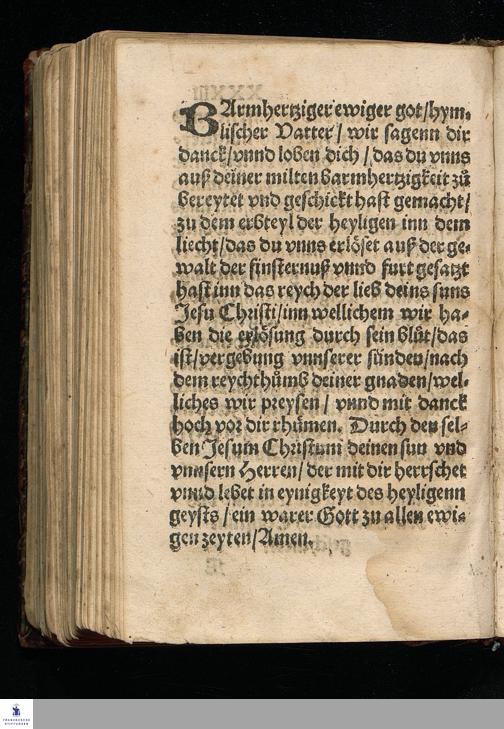 BArmhertziger ewiger got/hym⸗
lischer Vatter/ wir sagenn dir
danck/vnnd loben dich/das du vnns
auß deiner milten barmhertzigkeit zů
bereytet vnd geschickt hast gemacht/
zu dem erbteyl der heyligen inn dem
liecht/das du vnns erlöset auß der ge⸗
walt der finsternuß vnnd furt gesatzt
hast inn das reych der lieb deins suns
Jesu Christi/inn wellichem wir ha⸗
ben die erlösung durch sein blůt/das
ist/vergebung vnnserer sünden/nach
dem reychthůmb deiner gnaden/wel⸗
liches wir preysen/ vnnd mit danck
hoch vor dir rhümen. Durch den sel⸗
ben Jesum Christum deinen sun vnd
vnnsern Herren/der mit dir herrschet
vnnd lebet in eynigkeyt des heyligenn
geysts/ein warer Gott zu allen ewi⸗
gen zeyten/Amen.
FRANCKESCHE
STIFTUNGEN